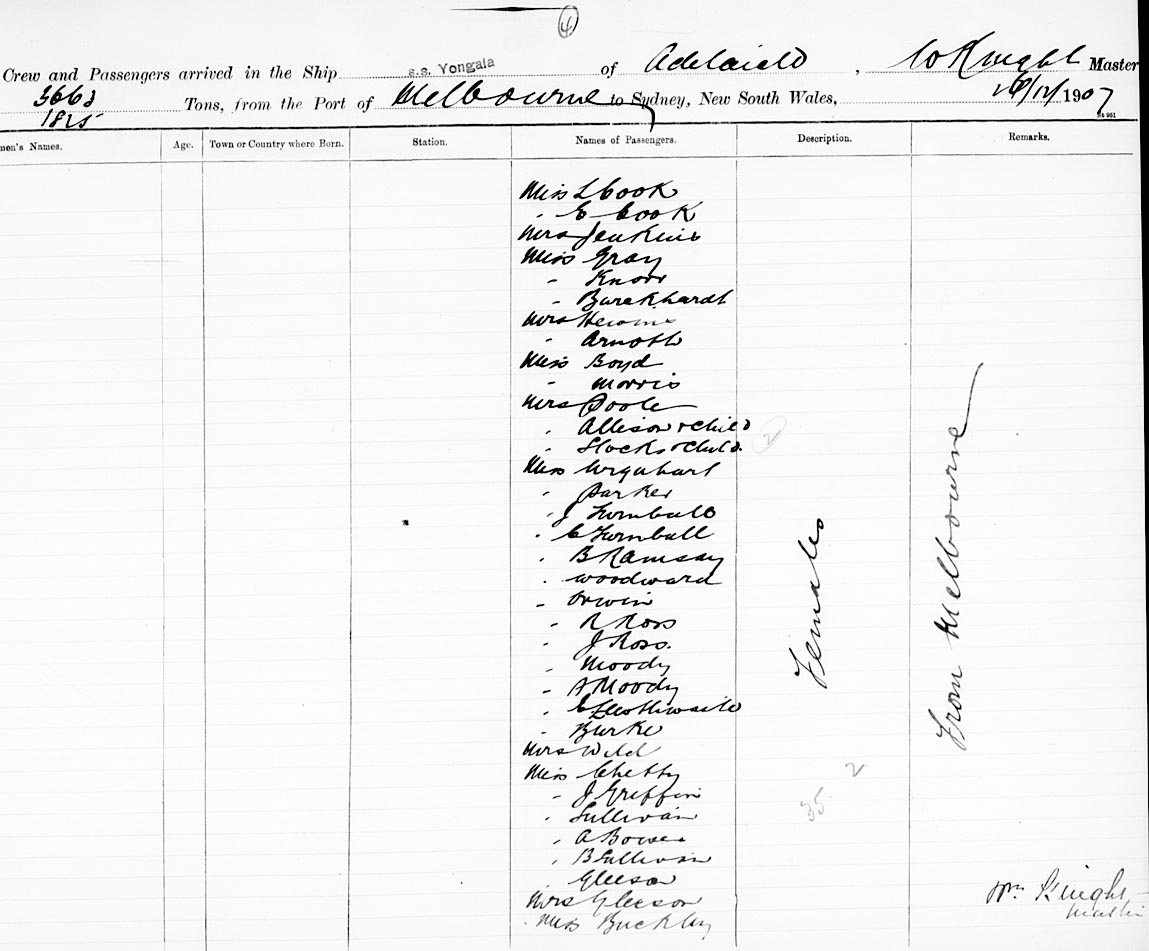 4
Crew and Passengers arrived in the Ship s.s. Yongala of Adelaide, W Knight Master
3663
1825 Tons, from the Port of Melbourne to Sydney, New South Wales, /12/1907
men's Names. Age. Town or Country where Born. Station. Names of Passengers. Description. Remarks.
Miss L Cook
" E Cook
Mrs Jenkins
Miss Gray
" Knorr
" Burckhardt
Mrs
" Arnott
Miss Boyd
" Morris
Mrs Poole
" Allison & child
" Stocks & child 2
Miss Urquhart
" Parker
" J Turnbull
" C Turnbull
" B Ramsay
" Woodward
" Orwin
" R Ross
" J Ross.
" Moody
" A Moody
" E
" Burke
Mrs Wild
Miss Chetty
" J Griffin
" Sullivan
" A Bower
" B Sullivan
" Gleeson
Mrs Gleeson
Miss Buckley
Females
35 2
From Melbourne
Wm Knight
Master